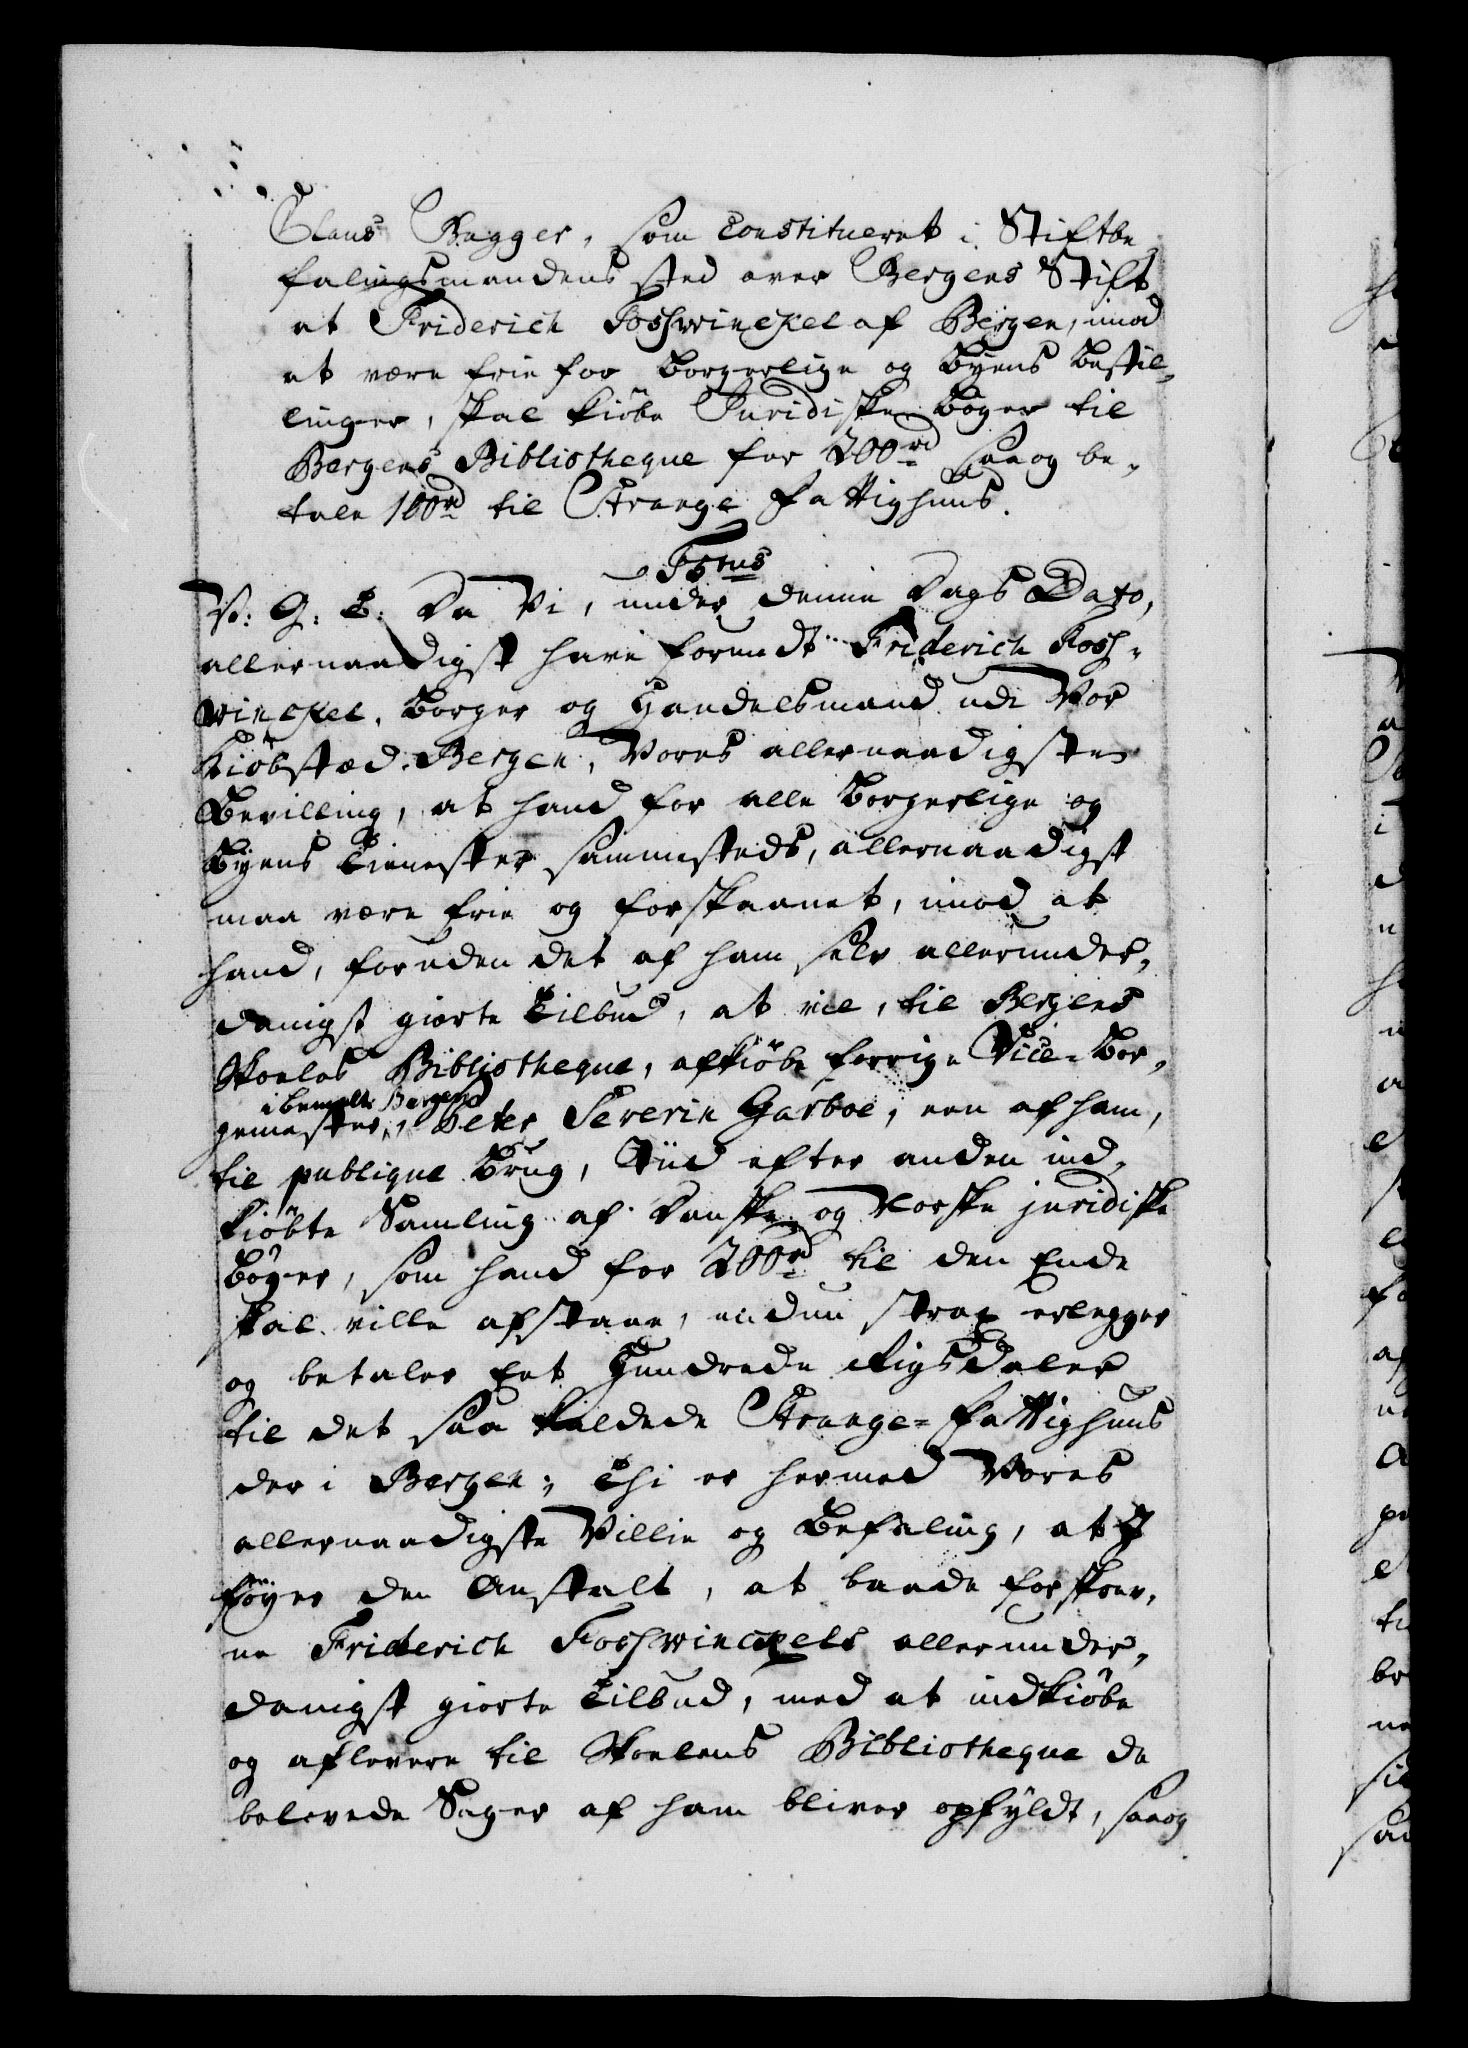 Claus Bagger, som Constitueret i Stiftbe
falingsmandens sted over Bergens Stift
at Friderich Foswinckel af Bergen, imod
at være frie for borgerlige og Byens bestil-
linger, skal kiöbe Juridiske böger til
Bergens Bibliotheque for 200rd saa og be-
tale 100rd til Strange Fattighuus.
F5tus
V: G: T: Da Vi, under denne Dags Dato,
allernaadigst have forundt Friderich Fos-
winckel, borger og Handelsmand udi Vor
Kiöbstæd Bergen, Vores allernaadigste
Bevilling, at hand for alle borgerlige og
Byens Tienester sammesteds, allernaadigst
maa være frie og forskaanet, imod at
hand, foruden det af ham selv allerunder-
danigst giorte Tilbud, at vil, til Bergens
Skoeles Bibliotheque, afkiöbe forrige Vice-Bor-
i bemelte Bergen
gemester, Peter Severin Garboe, een af ham,
til publique Brug, Tiid efter anden ind-
kiöbte Samling af Danske og Norske juridiske
böger, som hand for 200rd til den Ende
skal ville afstaae, endnu strax erlegger
og betaler Eet Hundrede Rigsdaler
til det saa kaldede Strange-Fattighuus
der i Bergen; Thi er hermed Vores
allernaadigste Villie og Befaling, at I
föyer den Anstalt, at baade forskrev-
ne Friderich Foswinckels allerunder-
danigst giorte Tilbud, med at indkiöbe
og aflevere til Skoelens Bibliotheque de
belevede Sager af ham bliver opfyldt, saa og